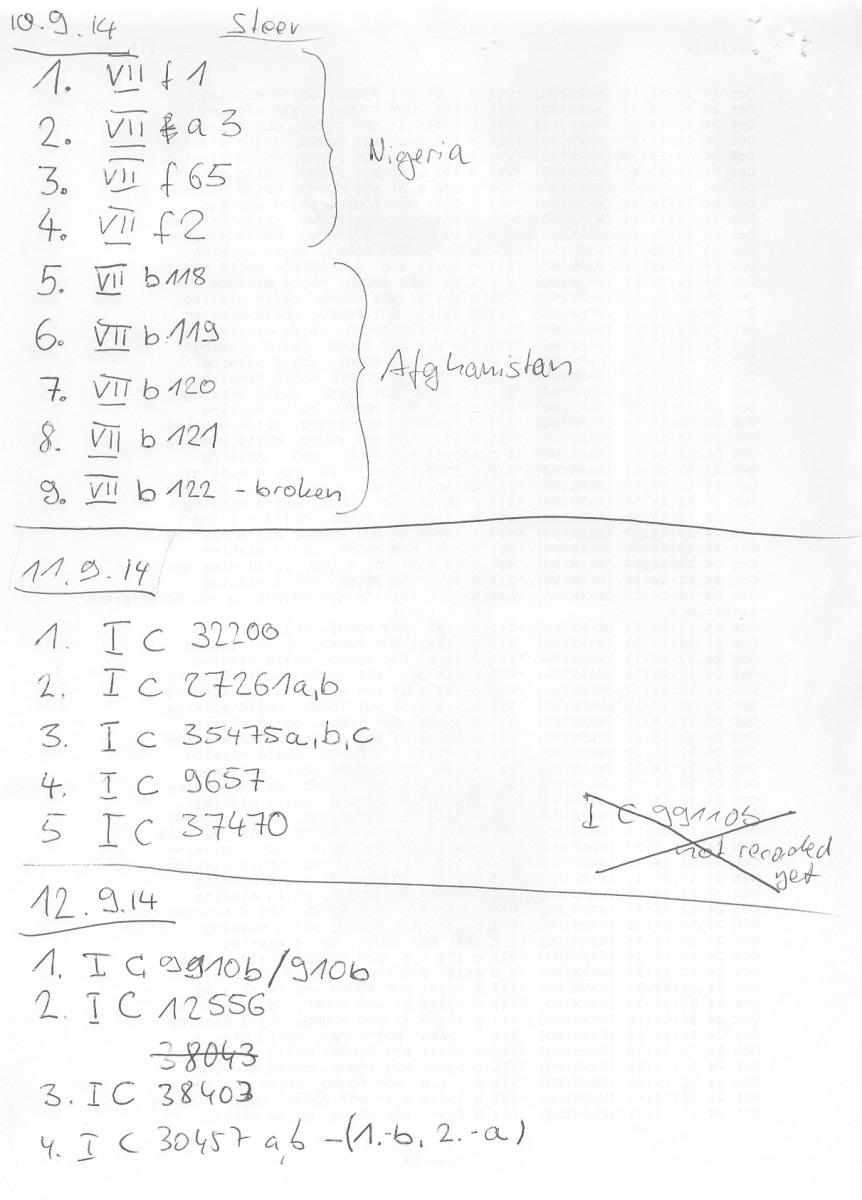 10.9.14 Steer
1. VII f 1
2. VII a 3
3. VII f 65
4. VII f 2
Nigeria
5. VII b 118
6. VII b 119
7. VII b 120
8. VII b 121
9. VII b 122 - broken
Afghanistan
11.9.14
1. I C 32200
2. I C 27261a,b
3. I C 35475a,b,c
4. I C 9657
5 I C 37470
I C
not recorded
yet
12.9.14
1. I C 9910b/910b
2. I C 12556
38043
3. I C 38403
4. I C 30457 a,b - (1.-b, 2.-a)